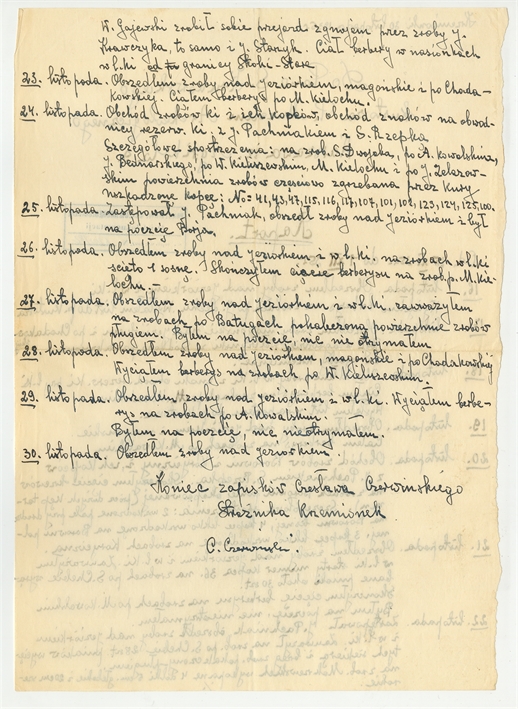 W. Gajewski zrobił sobie przejazd z gnojem przez zroby J.
Krawczyka, to samo i J. Staszyk. Ciął berbery w nasionkach
w l. ki od granicy Skoki - Stare
23. listopada. Obszedłem zroby nad jeziórkiem, magonskie i po Choda-
kowskiej. Ciąłem berberys po M. Kidochu.
24. listopada. Obchód zrobów ki z ich kopców, obchód znaków na obwod-
nicy rezerw. ki. z J. Pachniakiem i S. Rzepka
Szczegółowe spostrzeżenia: na zrob. S. Dwojaka, po A. Kowalskim,
J. Bednarskiego, po W. Kieluszewskim, M. Kidochu i po J. Zelazow-
skim powierzchnia zrobów częściowo zagrzebana przez kury
uszkodzone kopce: No= 41, 43, 47, 115, 116, 117, 107, 101, 108, 123, 124, 125, 100.
25. listopada. Zastępował J. Pachniak, obszedł zroby nad jeziórkiem i był
na poczcie
26. listopada. Obszedłem zroby nad jeziorkiem i w l. ki. na zrobach w l. ki
ścięto 1 sosnę. Skończyłem cięcie berberysu na zrob. p. M. Ki-
dochu. -
27. listopada. Obszedłem zroby nad jeziorkiem i w l. ki. zauważyłem
na zrobach po Batugach pokaleczoną powierzchnię zrobów
pługiem. Byłem na poczcie, nic nie otrzymałem
28. listopada. Obszedłem zroby nad jeziorkiem, magonskie i po Chodakowskiej
Wyciąłem berberys na zrobach po W. Kieluszewskim. -
29. listopada. Obszedłem zroby nad jeziórkiem i w l. ki. Wyciąłem berbe-
rys na zrobach po A. Kowalskim.
Byłem na poczcie, nic nieotrzymałem.
30. listopada. Obszedłem zroby nad jeziorkiem.
Koniec zapisków Czesława Czerwińskiego
Strażnika Krzemionek
C. Czerwiński.